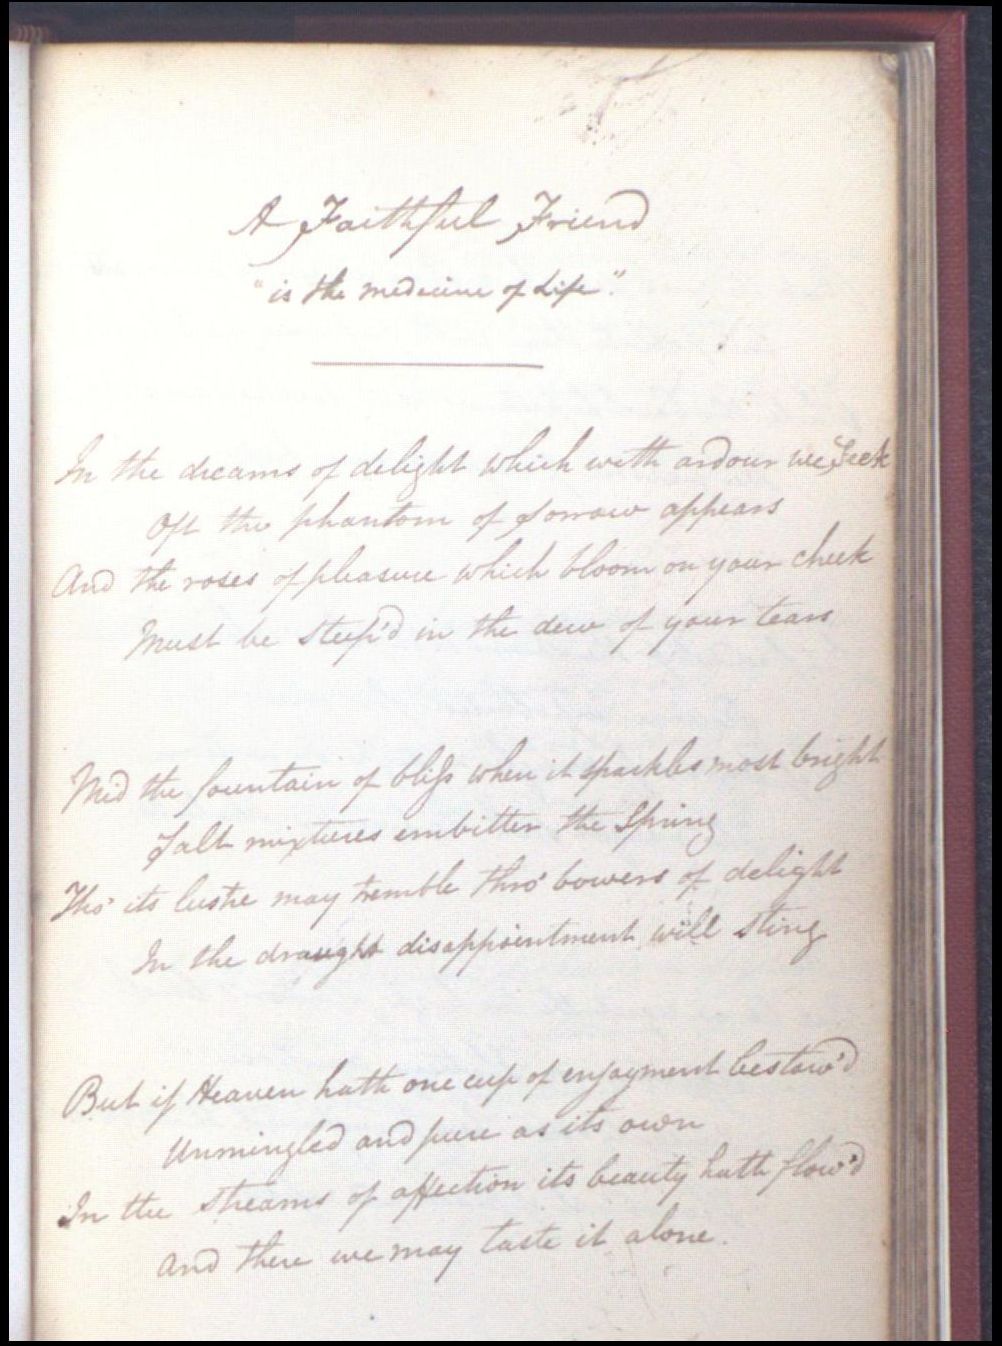 A Faithful Friend
"is the medecine of Life".
In the dreams of delight which with ardour we Seek
Oft the phantom of Sorrow appears
And the roses of pleasure which bloom on your cheek
Must be steep'd in the dew of your tears
Mid the fountain of bliss when it sparkles most bright
Salt mixtures embitter the Spring
Tho' its lustre may tremble thro' bowers of delight
In the draught disappointment will sting
But if Heaven hath one cup of enjoyment bestow'd
Unmingled and pure as its own
In the streams of affection its beauty hath flow'd
And there we may taste it alone.